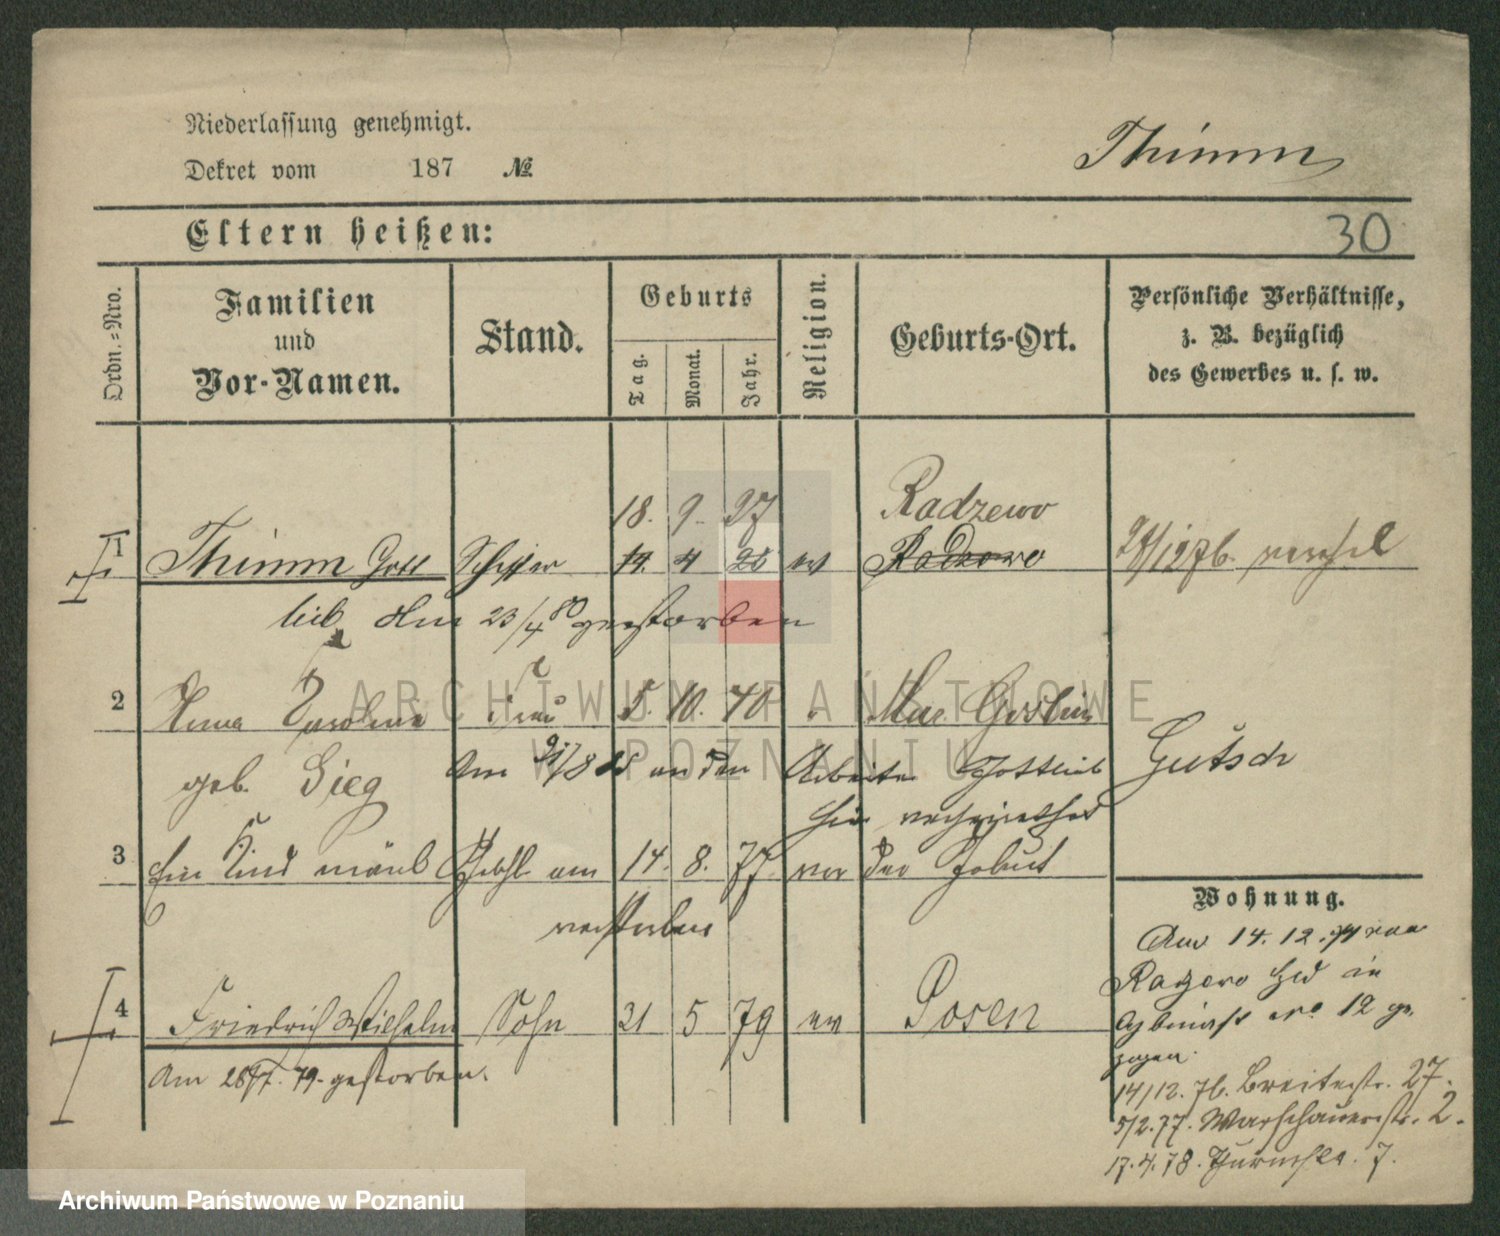 Niederlassung genehmigt.
Dekret vom 187 №
Thimm
Eltern heißen:
30
Ordn.-Nro.
Familien
und
Vor-Namen.
Stand.
Geburts
Tag.
Monat.
Jahr.
Religion.
Geburts-Ort.
Persönliche Verhältnisse,
z. B. bezüglich
des Gewerbes u. s. w.
18. 9. 27 Radzewo
1 Thimm Gott Schiffer 14 4 28 ev Radzewo
lieb Am 23/4 80 gestorben
2 Anna Caroline Frau 5. 10. 40 Goslin
geb. Sieg Am an den Arbeiter Gottlieb Gutsch
hier
3 Ein Kind männl am 14. 8. 77 vor der Geburt
verstorben
Wohnung.
Am 14. 12. von
4 Friedrich Wilhelm Sohn 21 5 79 ev Posen
Am 28/7. 79. gestorben.
12 ge
zogen.
14/12. 76. Breitestr. 27.
5/2. 77. Warschauerstr. 2.
17. 4. 78. 7.
ARCHIWUM PAŃSTWOWE
W POZNANIU
Archiwum Państwowe w Poznaniu